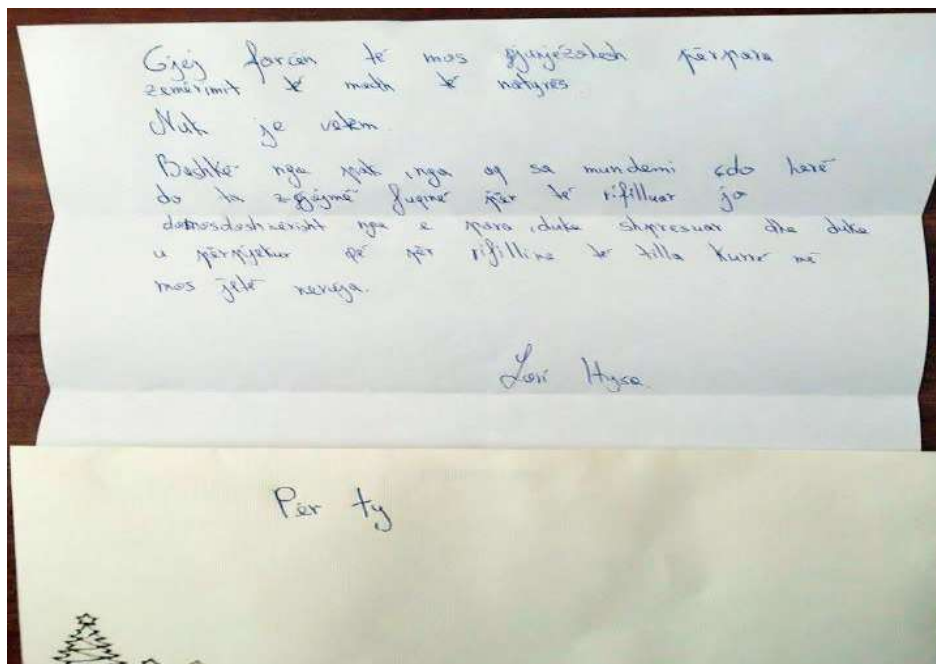 Gjej forcën të mos gjunjëzohesh përpara
zemërimit të madh të natyrës.
Nuk je vetëm.
Bashkë nga pak, nga aq sa mundemi çdo herë
do ta zgjojmë fuqinë për të rifilluar jo
domosdoshmërisht nga e para, duke shpresuar dhe duke
u përpjekur që për rifillime të tilla kurrë më
mos jetë nevoja.
Hysa
Për ty